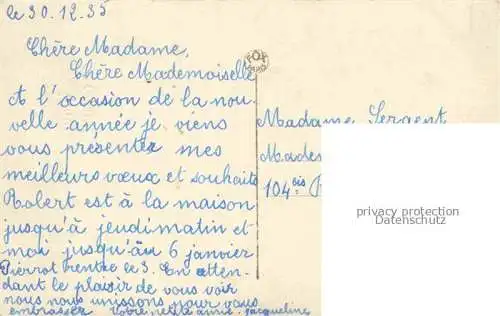 le 30.12.35
Chère Madame,
Chère Mademoiselle
A l'occasion de la nou-
velle année je viens
vous présenter mes
meilleurs vœux et souhaits
Robert est à la maison
jusqu'à jeudi matin et
moi jusqu'au 6 janvier
Pierrot rentre le 3. En atten-
dant le plaisir de vous voir
nous nous unissons pour vous
embrasser Votre petite amie Jacqueline
FOX
Madame Sergent
Mades
104 bis
privacy protection
Datenschutz